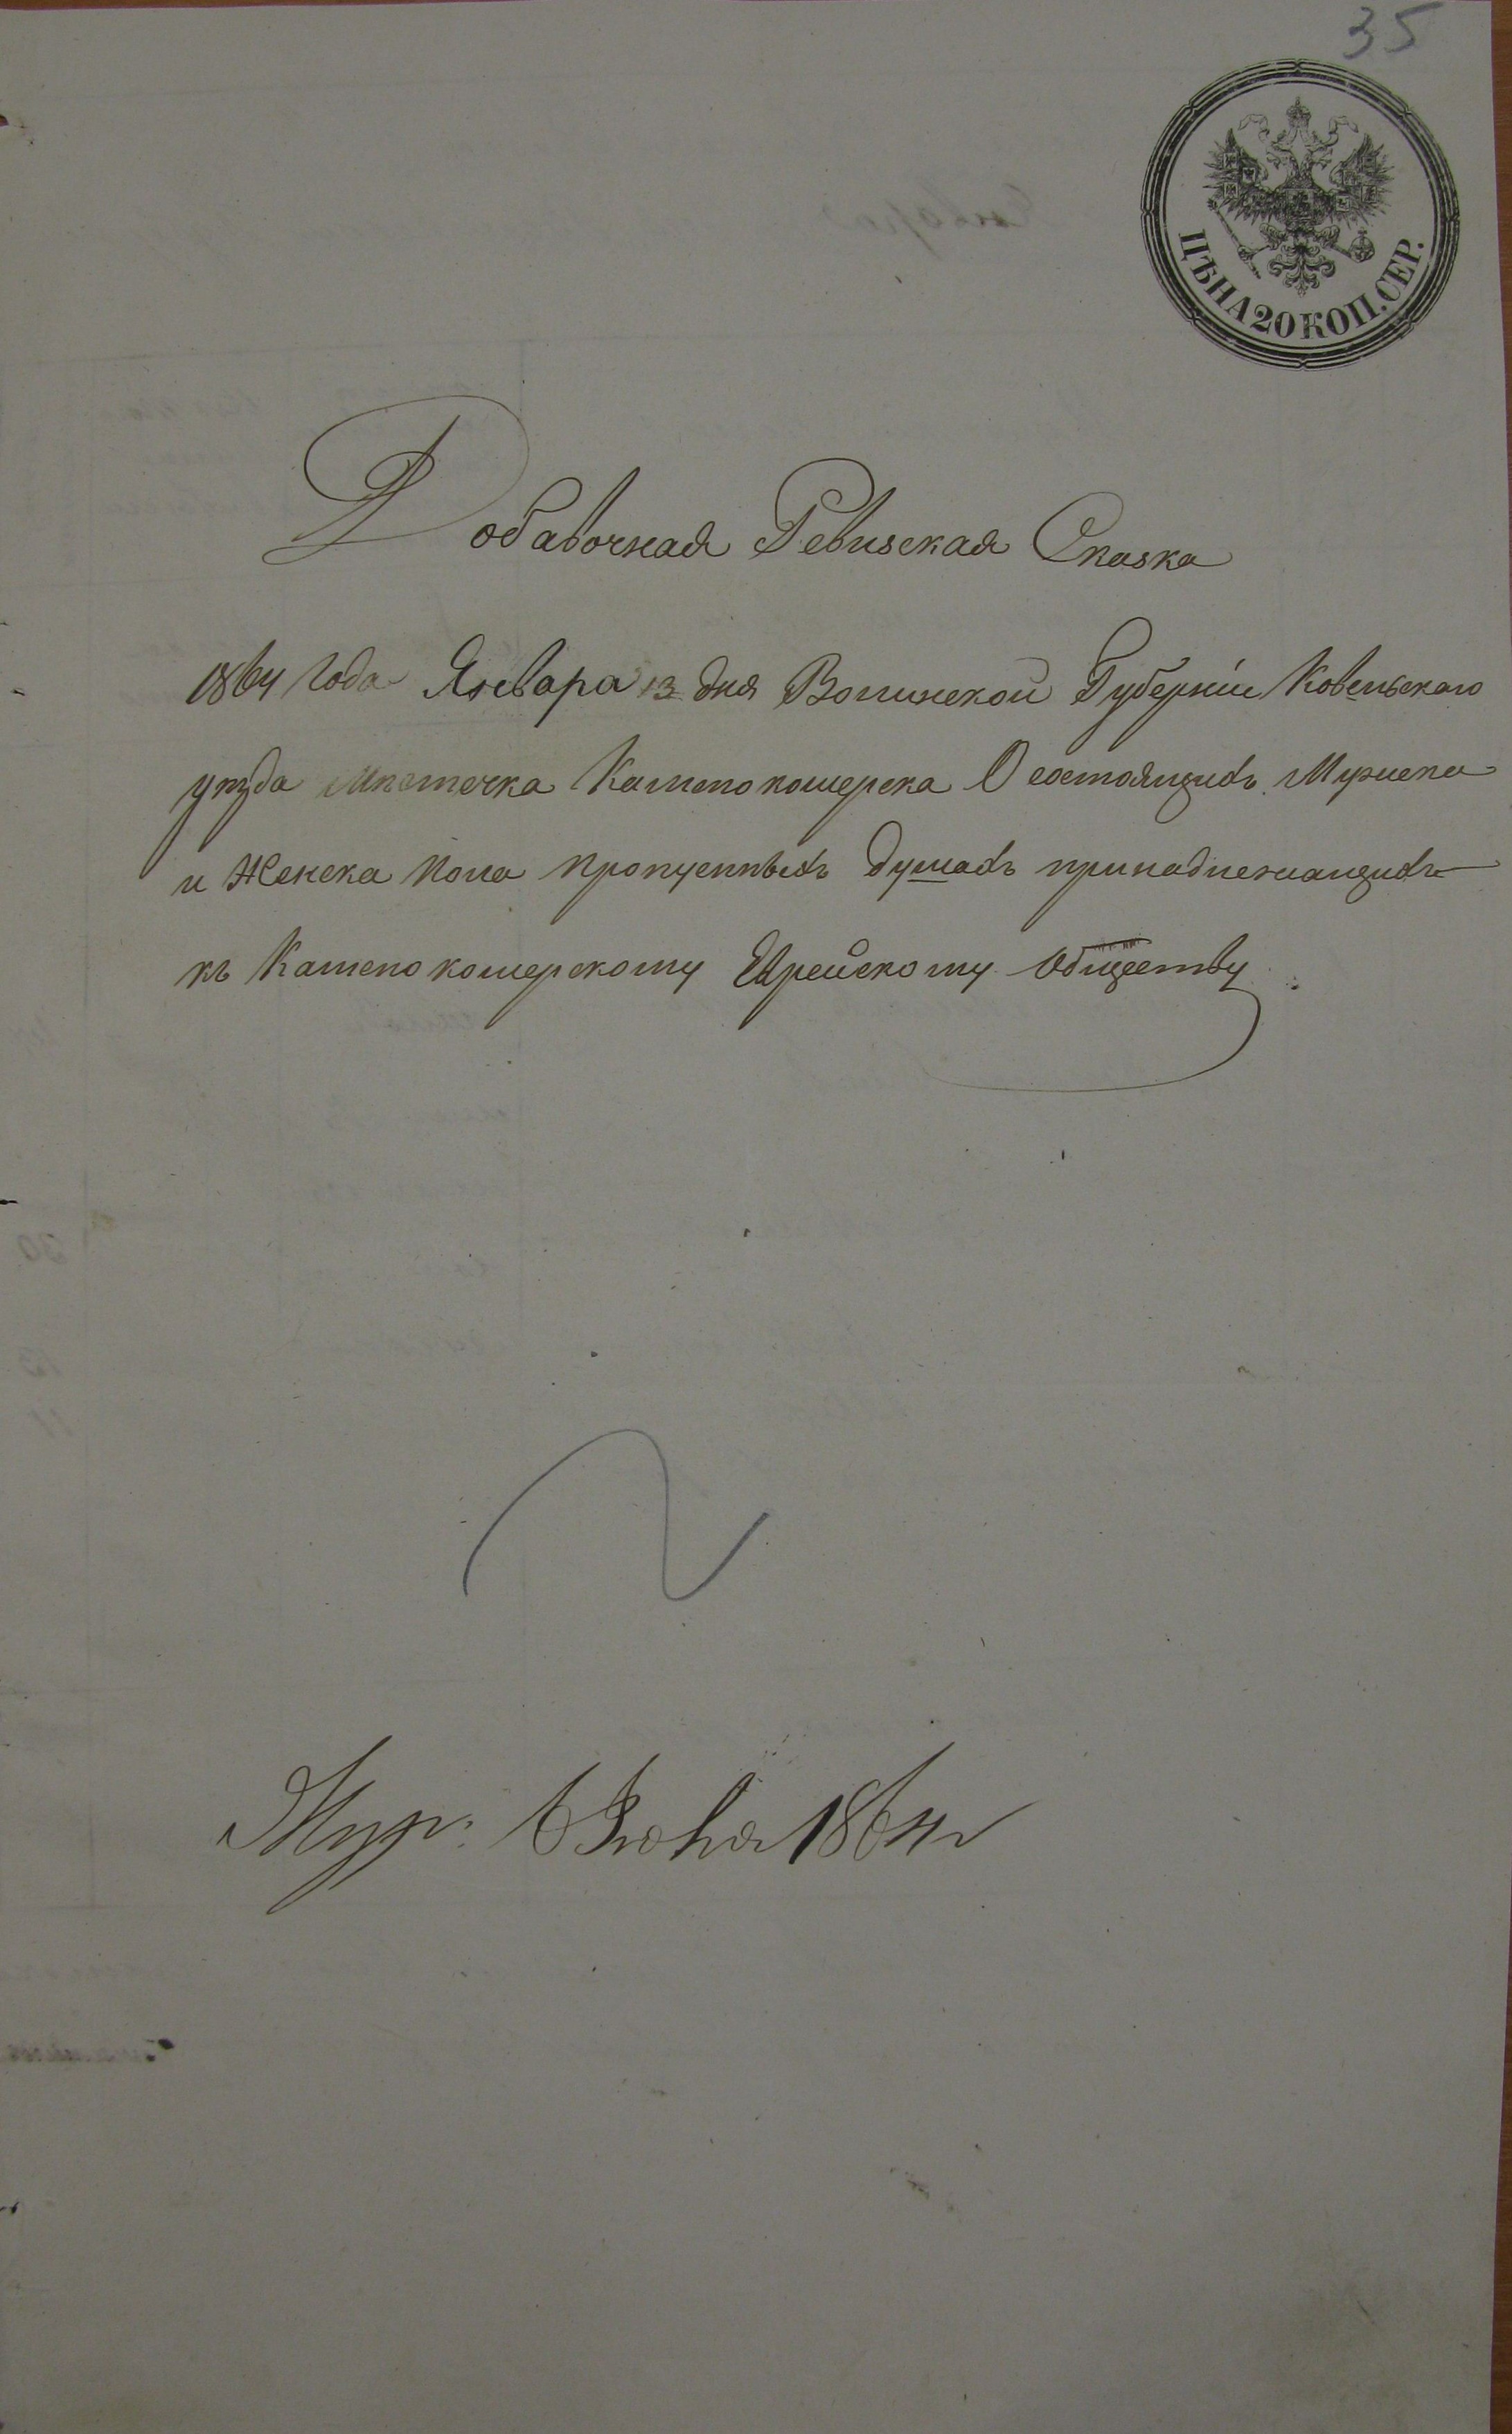 35
ЦѢНА 20 КОП. СЕР.
Добавочная Ревизская Сказка
1864 года Января 13 дня Волинской Губерніи Ковельскаго
уѣзда Мѣстечка Каменокошерска О состоящихъ Мужеска
и Женска пола пропусенныхъ душахъ принадлежащихъ
къ Каменокошерскому Еврейскому Обществу
6 1864